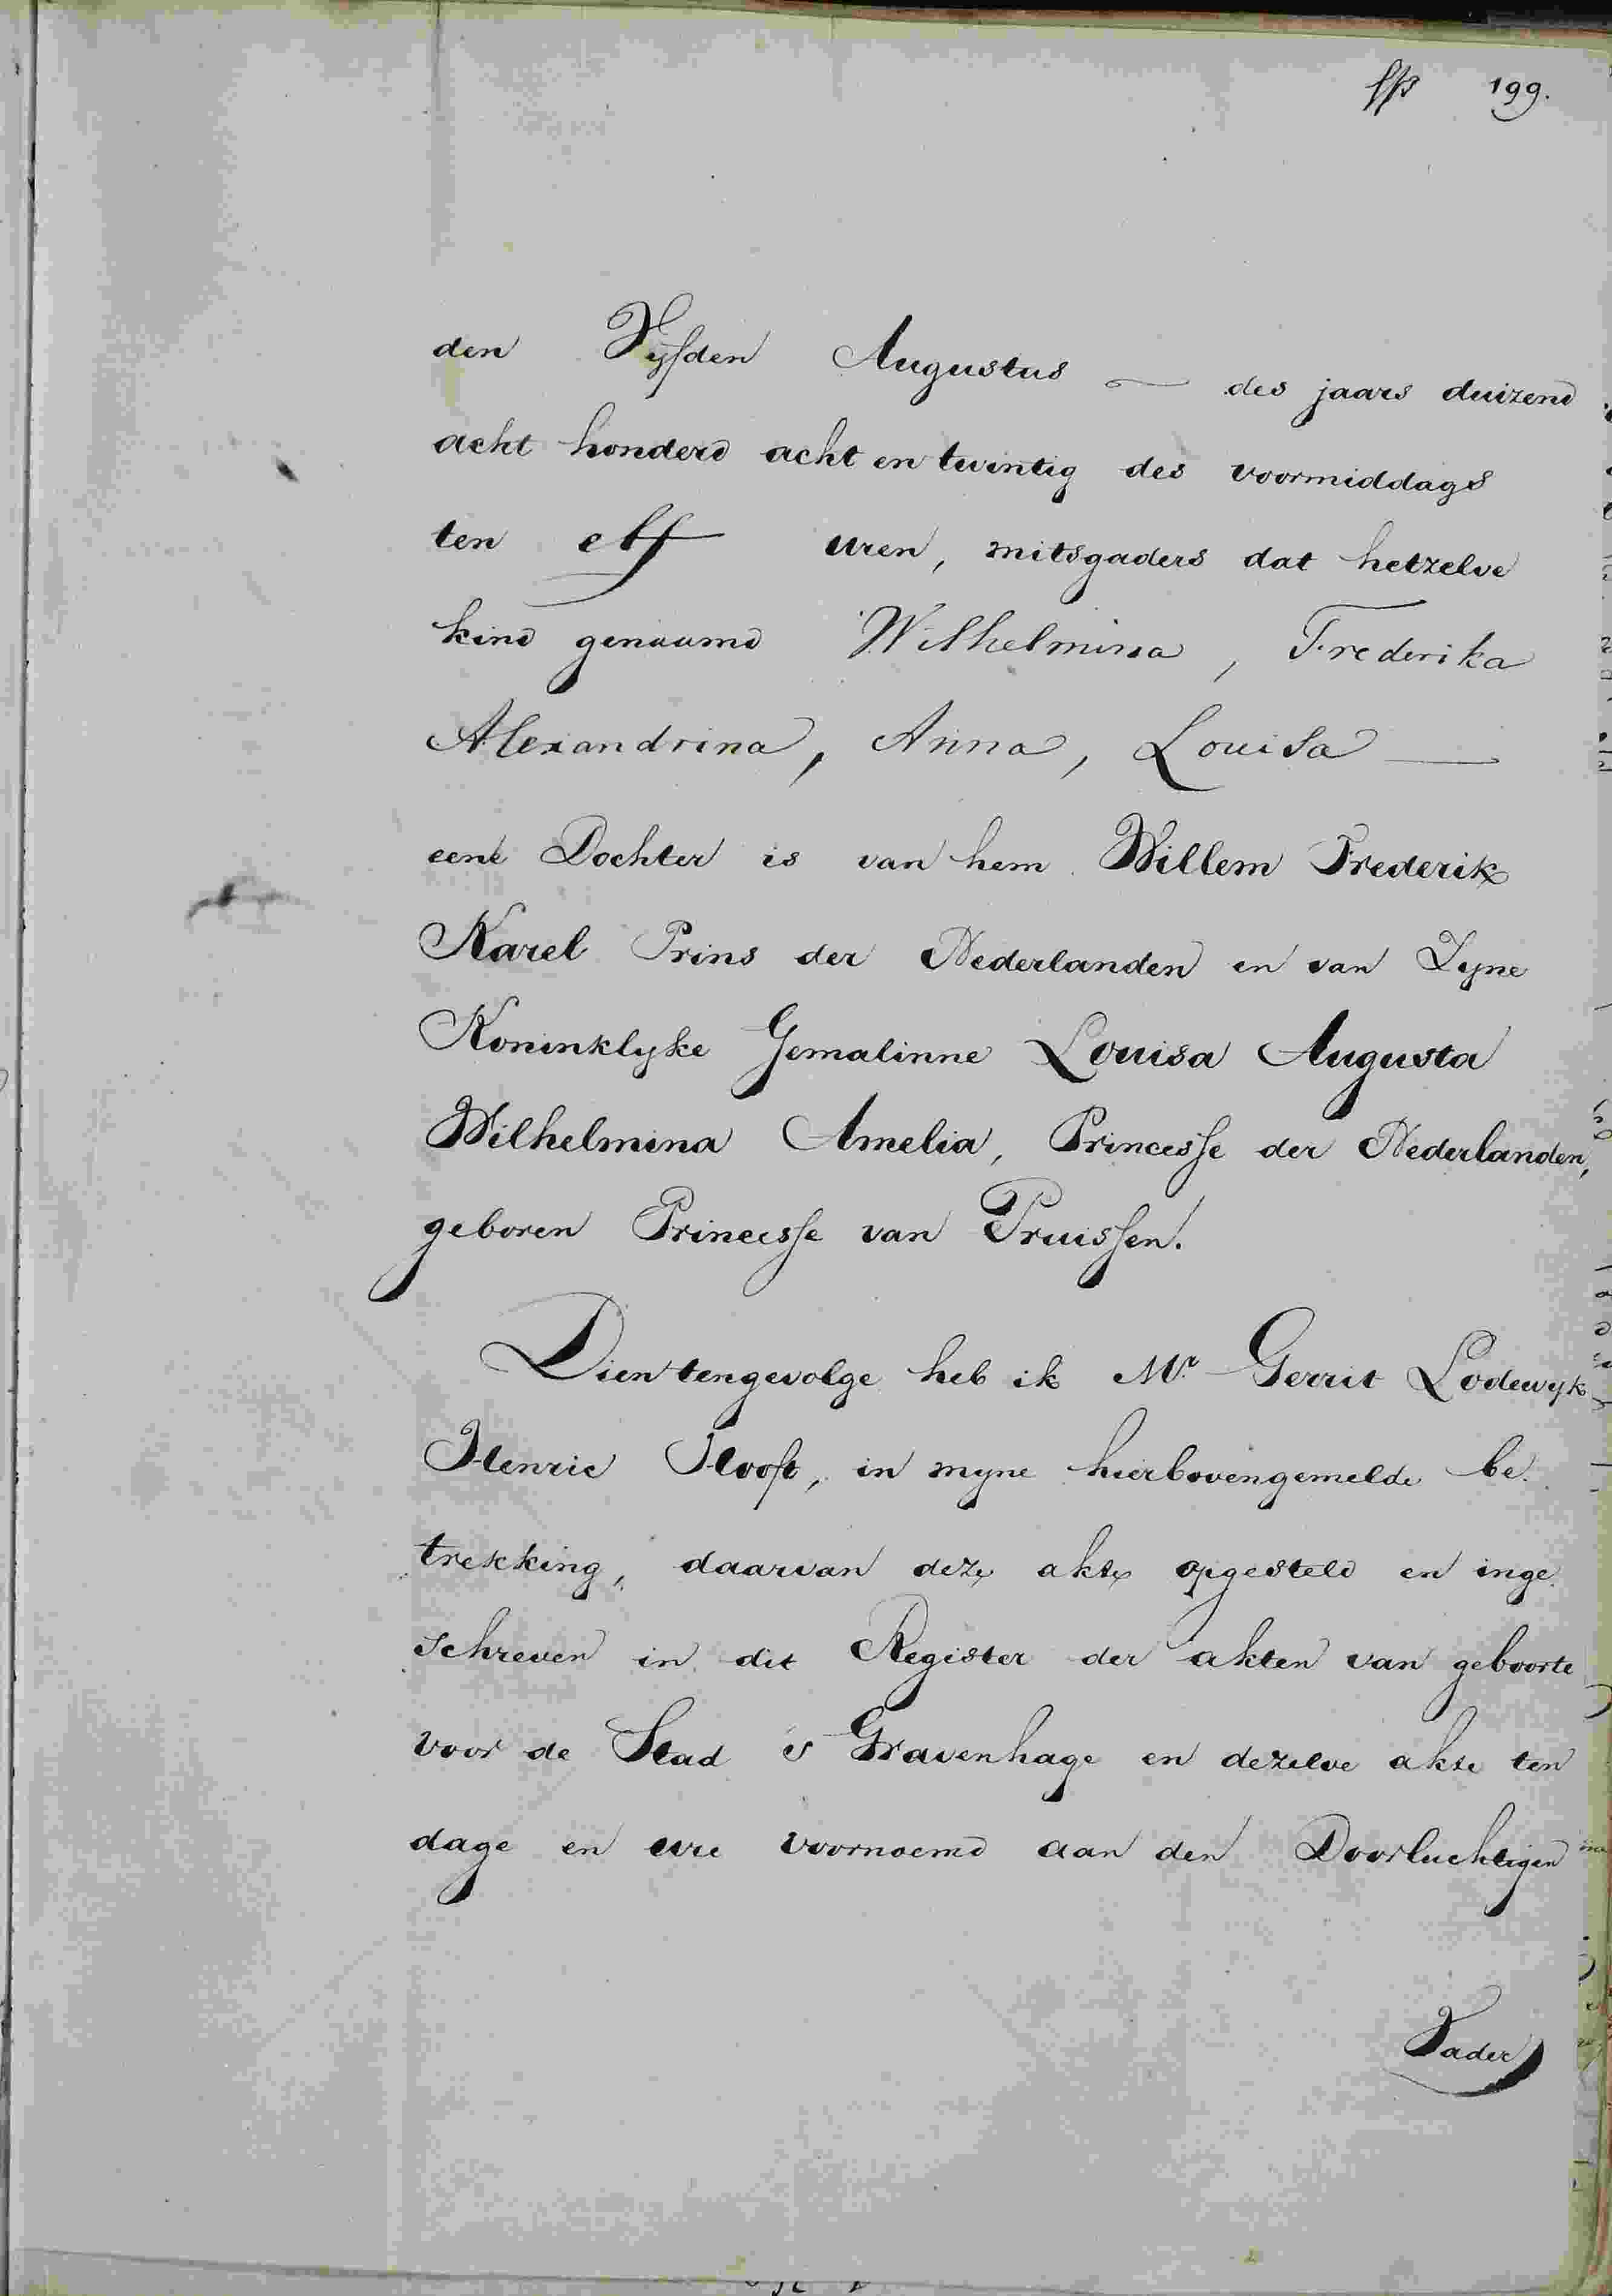 199.
den Vyfden Augustus — des jaars duizend
acht honderd acht en twintig des voormiddags
ten elf uren, mitsgaders dat hetzelve
kind genaamd Wilhelmina, Frederika
Alexandrina, Anna, Louisa —
eene Dochter is van hem Willem Frederik
Karel Prins der Nederlanden en van Zyne
Koninklyke Gemalinne Louisa Augusta
Wilhelmina Amelia, Princesse der Nederlanden,
geboren Princesse van Pruissen.
Dientengevolge heb ik Mr. Gerrit Lodewyk
Henric Hooft, in myne hierbovengemelde be-
trekking, daarvan deze akte opgesteld en inge-
schreven in dit Register der akten van geboorte
voor de Stad 's Gravenhage en dezelve akte ten
dage en ure voornoemd aan den Doorluchtigen
Vader